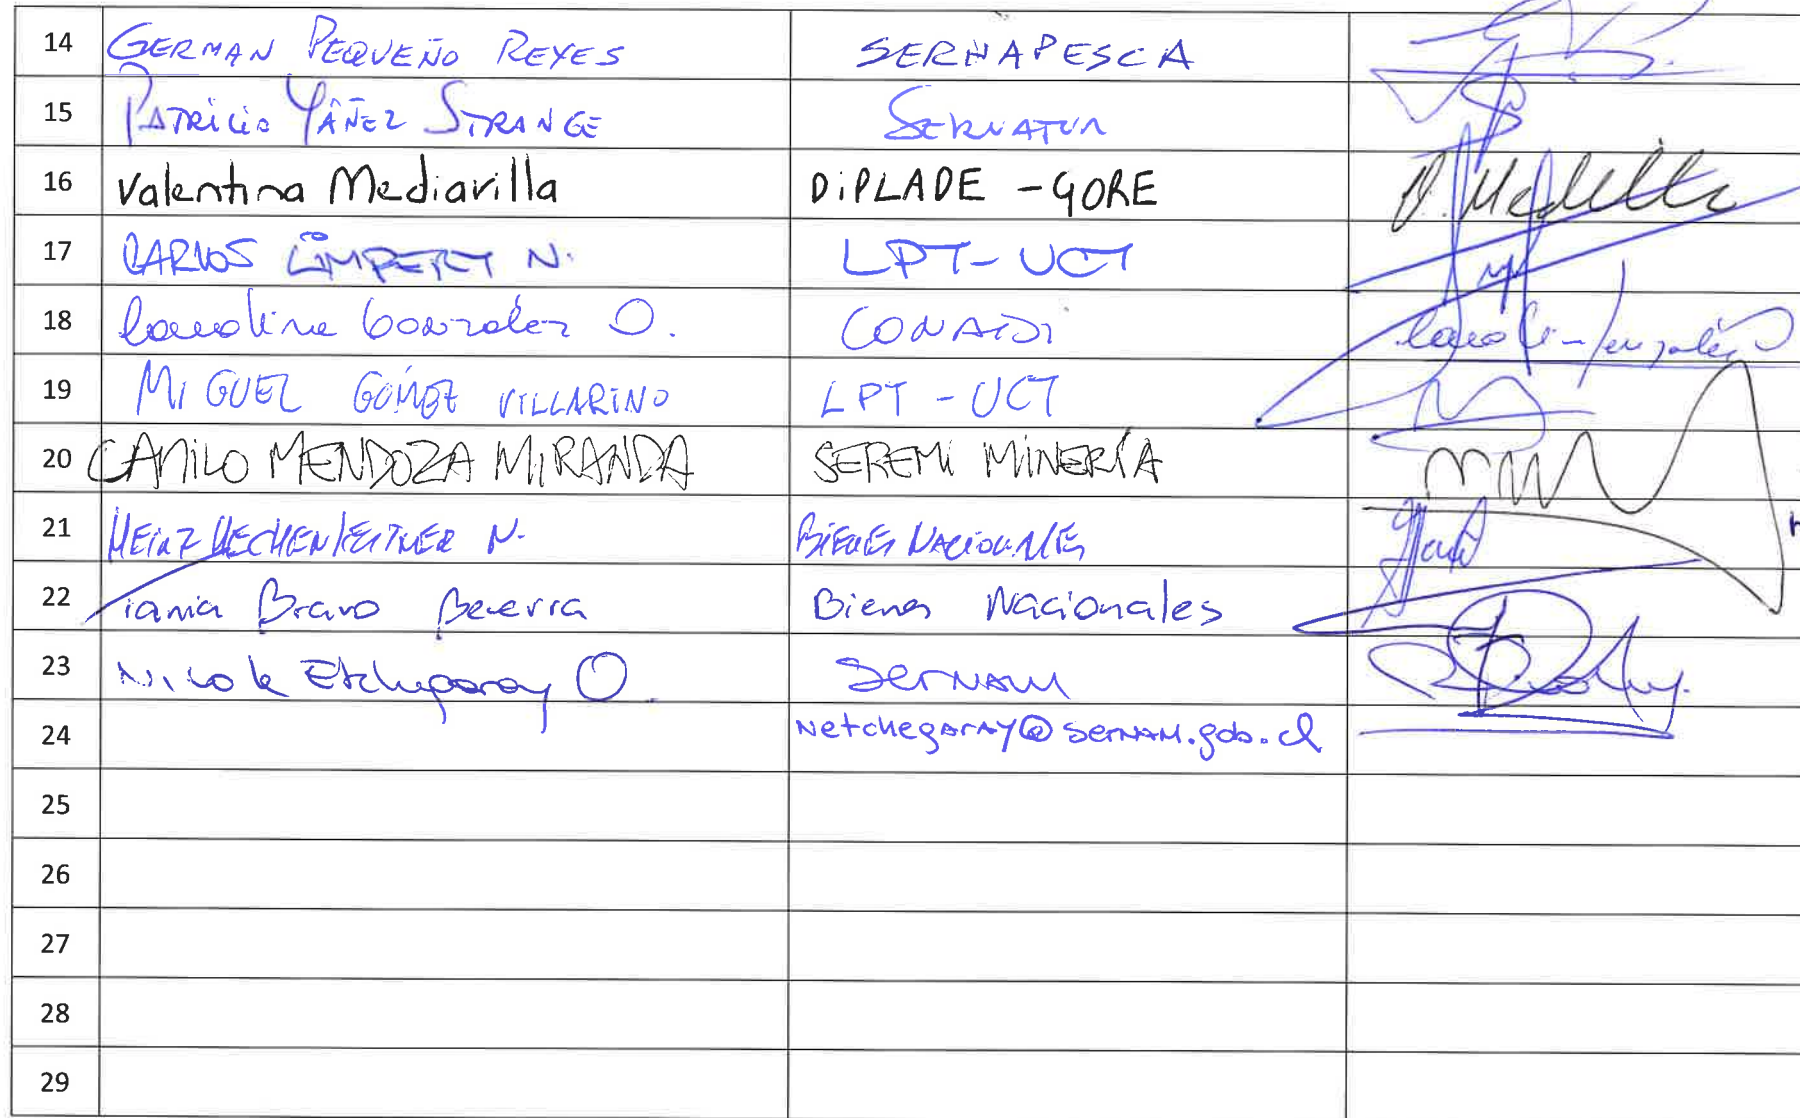 14 GERMAN PEQUEÑO REYES SERNAPESCA
15 PATRICIO YÁÑEZ STRANGE SERNATUR
16 Valentina Mediavilla DIPLADE - GORE V. Mediavilla
17 CARLOS LIMPERT N. LPT-UCT
18 Carolina González O. CONADI Carolina González O
19 MIGUEL GÓMEZ VILLARINO LPT - UCT
20 CAMILO MENDOZA MIRANDA SEREMI MINERÍA
21 HEINZ N. BIENES NACIONALES
22 Tania Bravo Becerra Bienes Nacionales
23 Nicole Etchegaray O. SERNAM
24 netchegaray@sernam.gob.cl
25
26
27
28
29